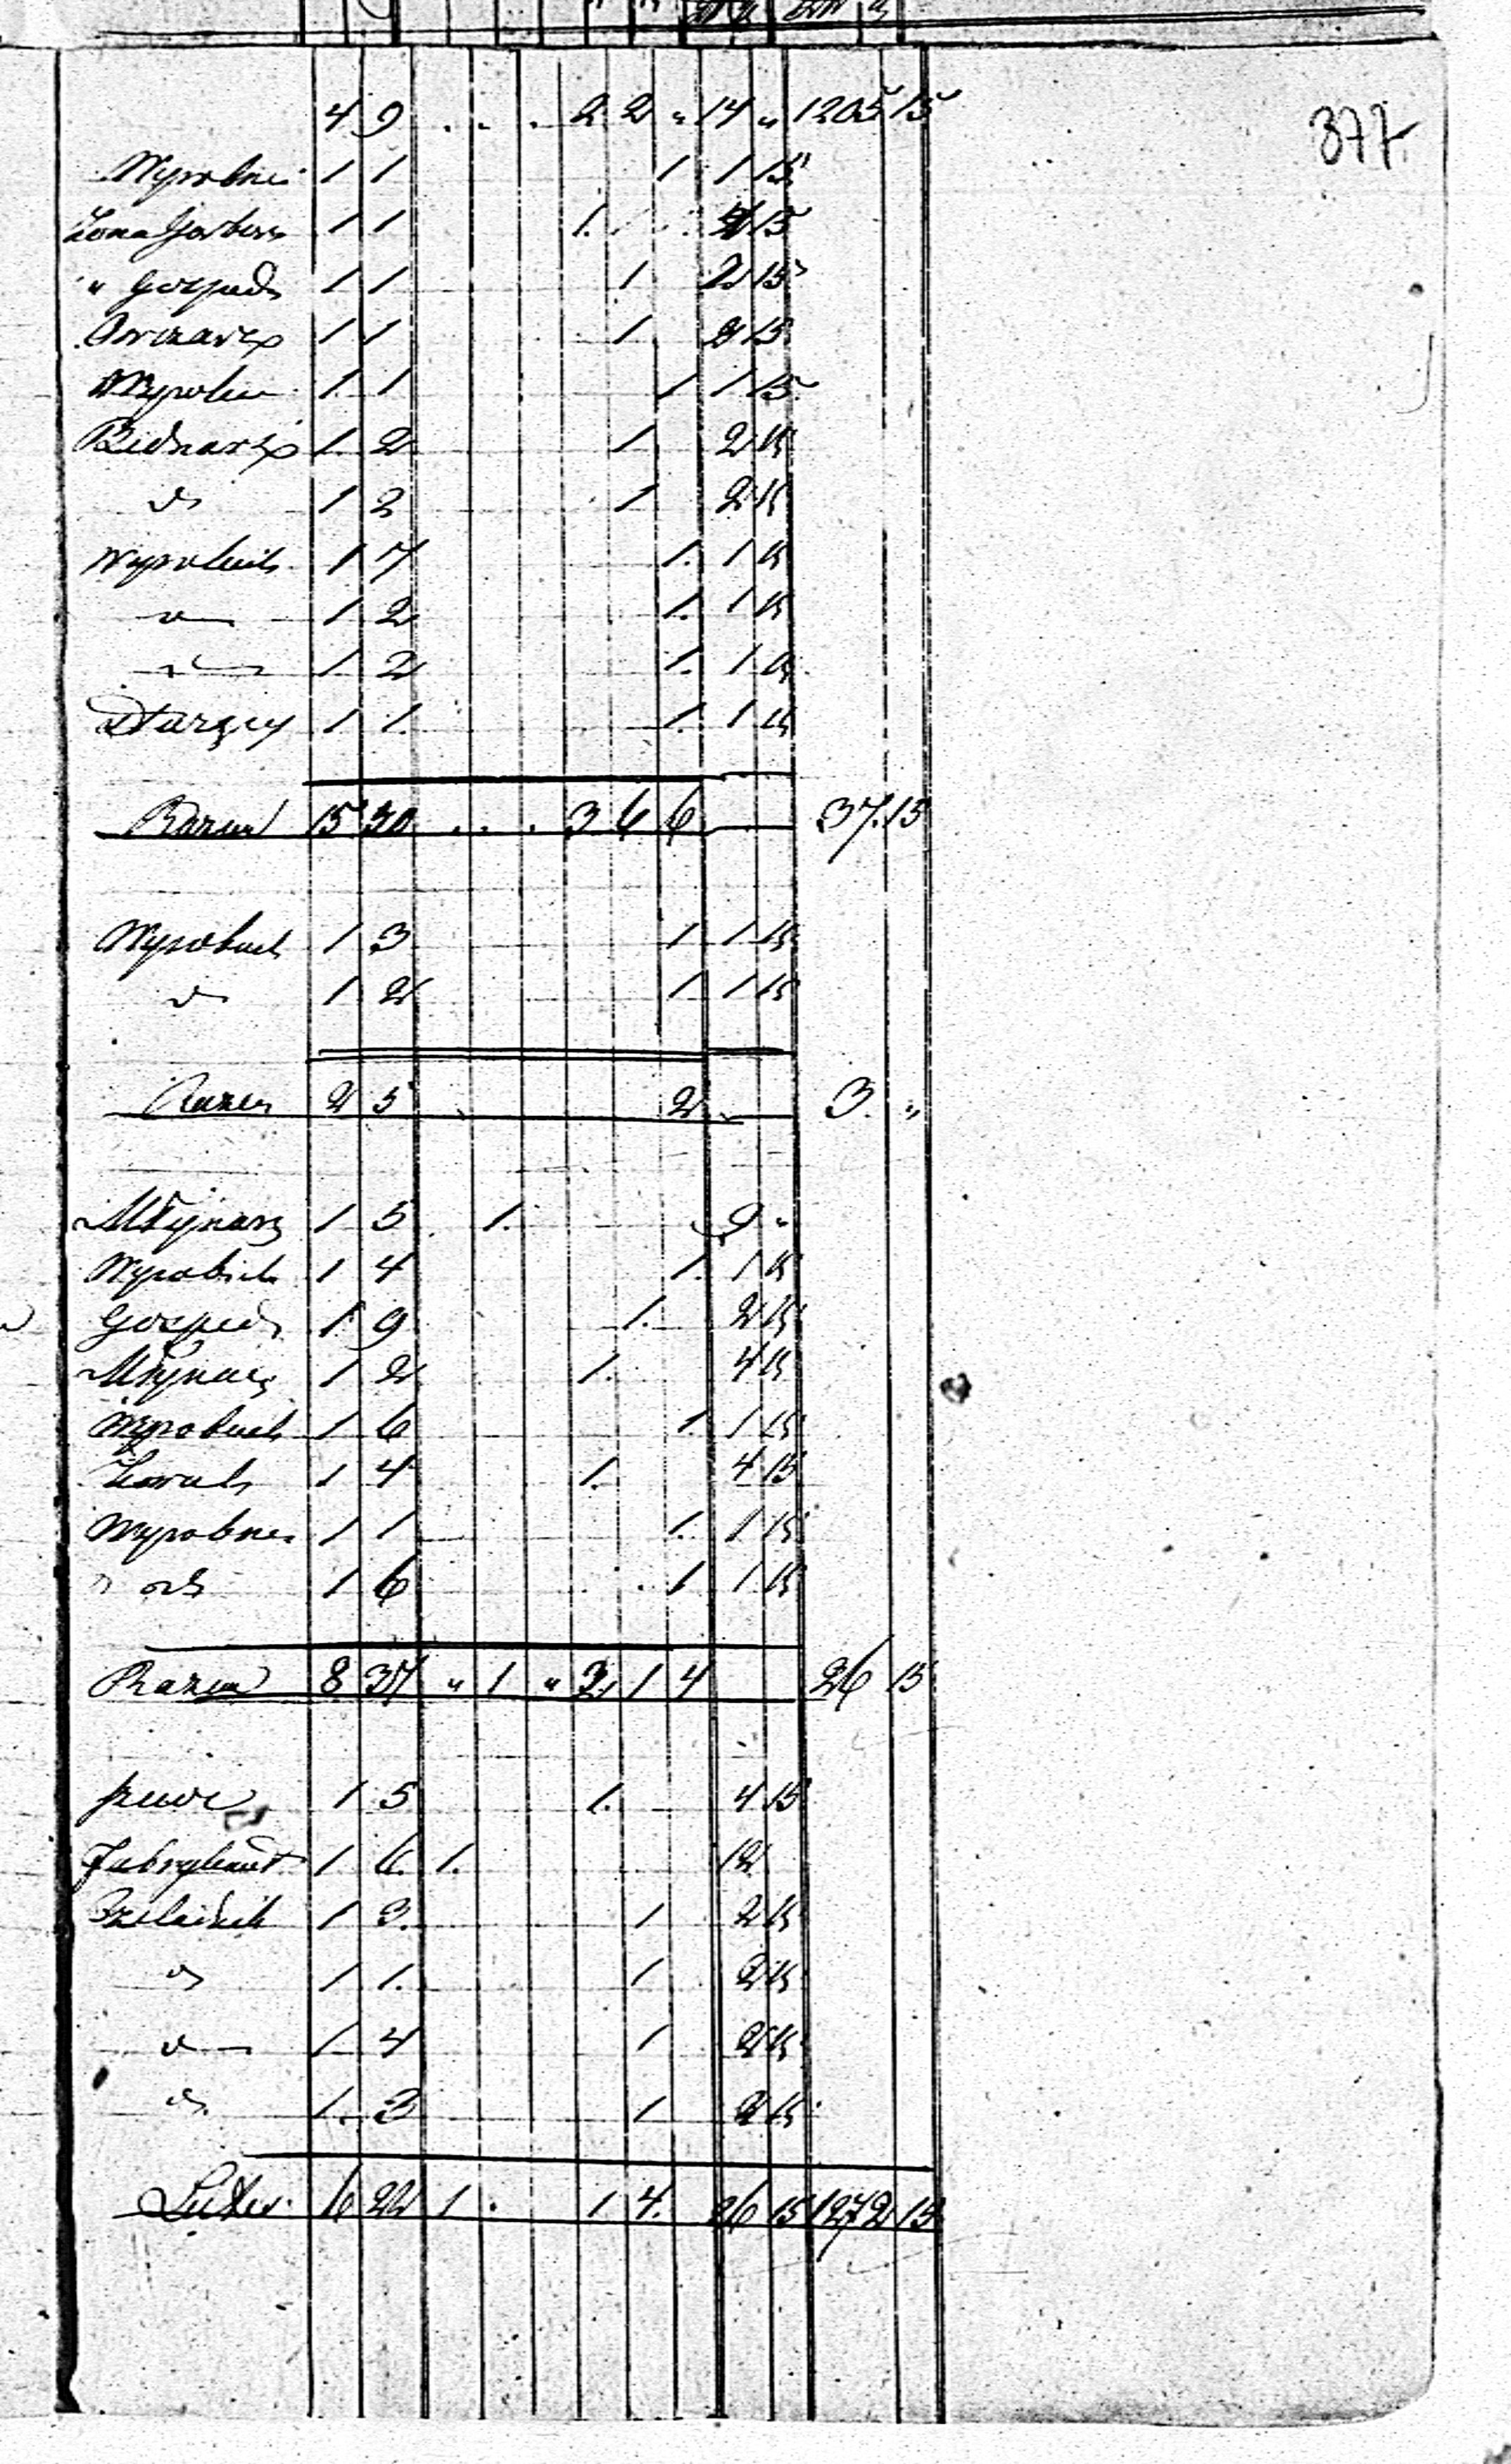 377
4 9 . . . 2 2 " 14 " 1205 15
Wyrobni 1 1 1 1 15
Żona Garbarz 1 1 1. 4 15
" Gospod 1 1 1 2 15
Owczarz 1 1 1 2 15
Wyrobn 1 1 1 1 15
Bednarz 1 2 1 2 15
d 1 2 1 2 15
Wyrobnik 1 7 1. 1 15
d 1 2 1. 1 15
1 2 1. 1 15
Starzec 1 1. 1. 1 15
Razem 15 30 . . . 3 6 6 37. 15
Wyrobnik 1 3 1 1 15
d 1 2 1 1 15
Razem 2 5 2 3. "
Młynarz 1 5 1. 9 "
Wyrobnik 1 4 1. 1 15
Gospod 1 9 1. 2 15
Młynarz 1 2 1. 4 15
Wyrobnik 1 6 1. 1 15
Kowal 1 4 1. 4 15
Wyrobnik 1 1 1. 1 15
1 6 1 1 15
Razem 8 37 " 1 " 2 1 4 26 15
szewc 1 5 1. 4 15
Fabrykant 1 6. 1. 12
Czeladnik 1 3. 1 2 15
d 1 1. 1 2 15
d 1 4 1 2 15
d 1. 3 1 2 15
Latus 6 22 1 . 1 4. 26 15 1272 15